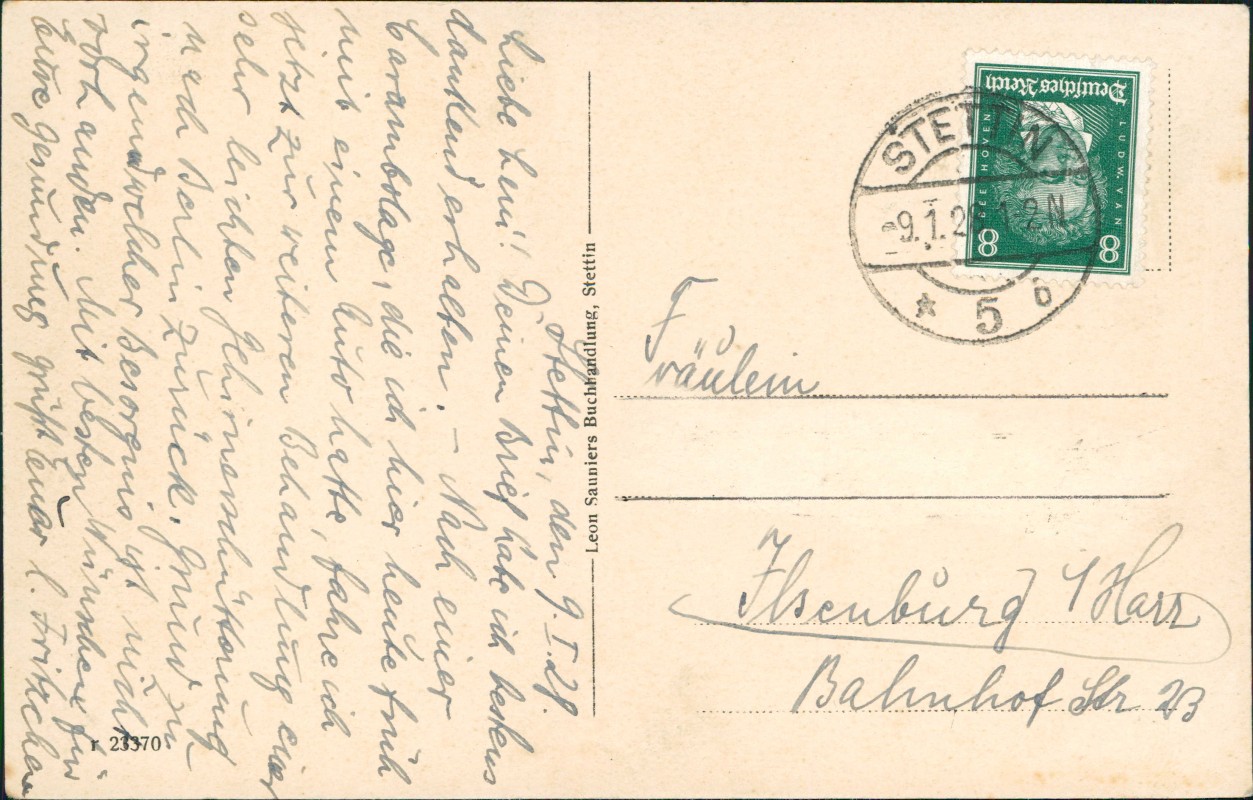 Stettin, den 9.I.28.
Liebe Leni! Deinen Brief habe ich bestens
dankend erhalten. – Nach einer
Carambolage, die ich hier heute früh
mit einem Auto hatte, fahre ich
jetzt zur weiteren Behandlung einer
sehr leichten Gehirnerschütterung
nach Berlin zurück. Grund zu
irgendwelcher Besorgnis ist nicht
vorhanden. Mit besten Wünschen für
Eure Gesundung grüßt Euer l. Fritzchen
r 23370
Leon Sauniers Buchhandlung, Stettin
Deutsches Reich
LUDW. VAN
BEETHOVEN
8 8
STETTIN
-9.1.28. 1-2N
* 5 b
Fräulein
Ilsenburg / Harz
Bahnhof Str 23